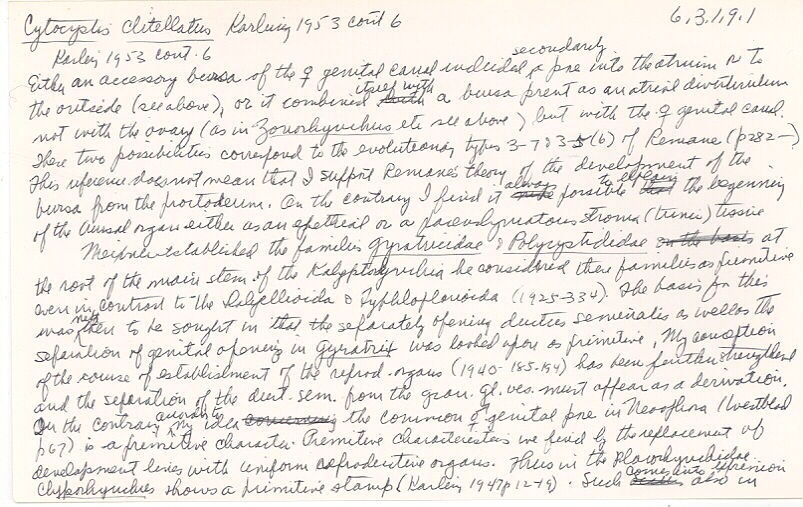 Cytocystis clitellatus Karling 1953 cont 6 6.3.1.9.1
Karling 1953 cont. 6
secondarily
Either an accessory bursa of the ♀ genital canal pore into the atrium or to
itself with
the outside (see above), or it combined a bursa present as an atrial diverticulum
not with the ovary (as in Zonorhynchus etc see above) but with the ♀ genital canal.
These two possibilities correspond to the evolutionary types 3-7 (6) of Remane (p282-)
This reference does not mean that I support Remane's theory of the development of the
always to explain
bursa from the proctoderm. On the contrary I find it possible the beginning
of the bursal organ either as an epithelial or a parenchymatous stroma (trunci) tissue
Meixner established the families Gyratricidae & Polycystididae on the basis at
the root of the main stem of the Kalyptorhynchia he considered these families as primitive
even in contrast to the Dalyellioida & Typhloplanoida (1925-334). The basis for this
was then to be sought in that the separately opening ductus seminalis as well as the
separation of genital openings in Gyratrix was looked upon as primitive. My conception
of the course of establishment of the reprod. organs (1940-185-194) has been further strengthened
and the separation of the duct. sem. from the gran. gl. ves. must appear as a derivation.
On the contrary my idea the common genital pore in Neoflora (Westblad
p67) is a primitive character. Primitive characteristics we find by the replacement of
development lines with uniform reproductive organs. Thus in the Placorhynchidae
comes into expression
Clyporhynchus shows a primitive stamp (Karling 1947 p12-19). Such also in